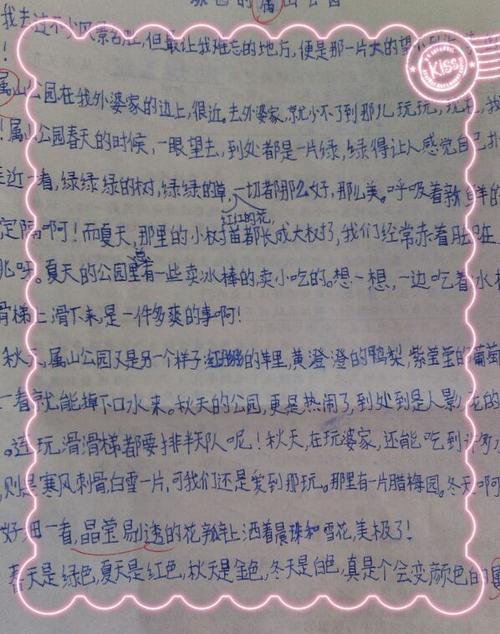 属山公园
我去过不少风景名胜,但最让我难忘的地方,便是那一片大的望
!
属山公园在我外婆家的边上,很近,去外婆家,就少不了到那儿玩玩,现在,我
!属山公园春天的时候,一眼望去,到处都是一片绿,绿得让人感觉自己
走近一看,绿绿绿的树,绿绿的草,一切都那么好,那么美。呼吸着新鲜的
红红的花,
定隔啊!而夏天,那里的小树苗都长成大树了,我们经常赤着脚在
儿呀。夏天的公园里有一些卖冰棒的,卖小吃的。想一想,一边吃着冰棒
滑梯上滑下来,是一件多爽的事啊!
秋天,属山公园又是另一个样子,的苹里,黄澄澄的鸭梨,紫莹莹的葡萄
一看就能掉下口水来。秋天的公园,更是热闹了,到处到是人影,
。连玩滑滑梯都要排半天队呢!秋天,在玩婆家,还能吃到许多
,则是寒风刺骨,白雪一片,可我们还是爱到那玩。那里有一片腊梅园。冬天啊
好细一看,晶莹剔透的花瓣上洒着晨珠和雪花,美极了!
春天是绿色,夏天是红色,秋天是金色,冬天是白色,真是个会变颜色的属
Kiss